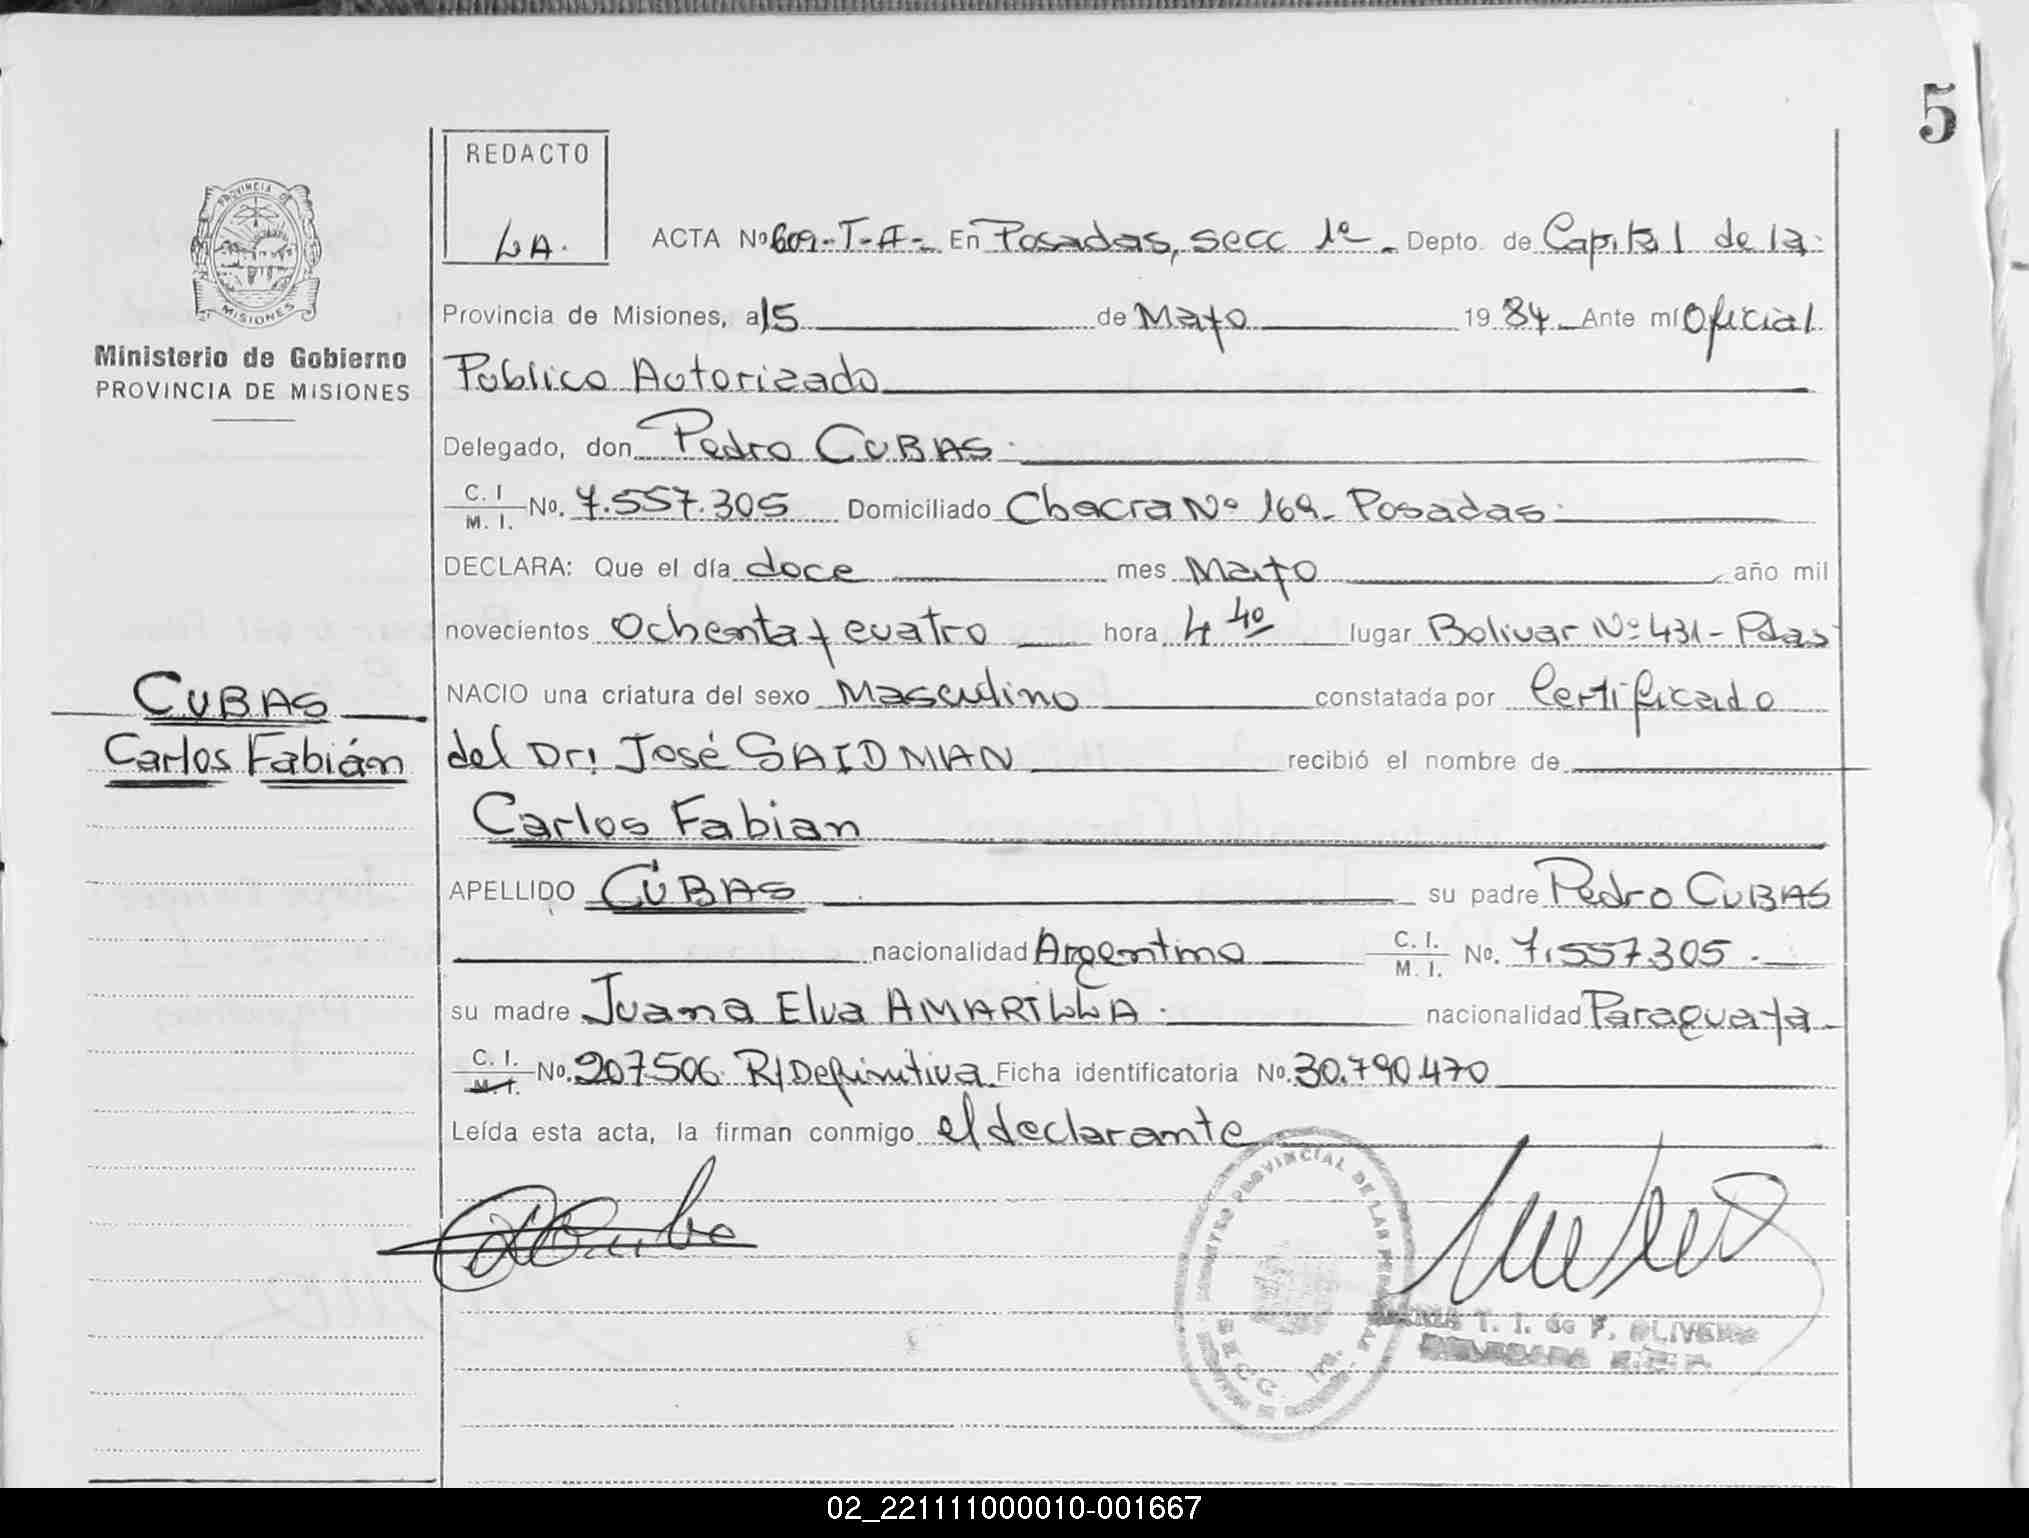 5
REDACTO
LA.
PROVINCIA DE
MISIONES
Ministerio de Gobierno
PROVINCIA DE MISIONES
ACTA No 609-T-A- En Posadas, secc 1º - Depto. de Capital de la
Provincia de Misiones, a 15 de Mayo 1984 Ante mí Oficial
Público Autorizado
Delegado, don Pedro CUBAS
C. I. / M. I. No. 7.557.305 Domiciliado Chacra Nº 169- Posadas
DECLARA: Que el día doce mes Mayo año mil
novecientos Ochenta y cuatro hora 4 40 lugar Bolivar Nº 431- Pdas
NACIO una criatura del sexo Masculino constatada por Certificado
del Dr: José SAIDMAN recibió el nombre de
Carlos Fabian
APELLIDO CUBAS su padre Pedro CUBAS
nacionalidad Argentino C. I. / M. I. No. 7.557.305
su madre Juana Elva AMARILLA nacionalidad Paraguaya
C. I. / M. I. No. 207.506 R/Definitiva Ficha identificatoria No. 30.790.470
Leída esta acta, la firman conmigo el declarante
CUBAS
Carlos Fabián
PROVINCIAL DE LAS
SECC. 1ra.
T. I. de F. OLIVERA
02_221111000010-001667